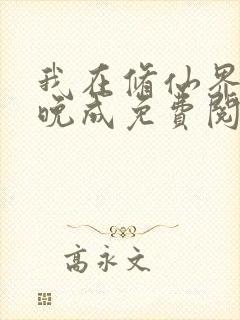 我在修仙界
晚成免费阅
高永文